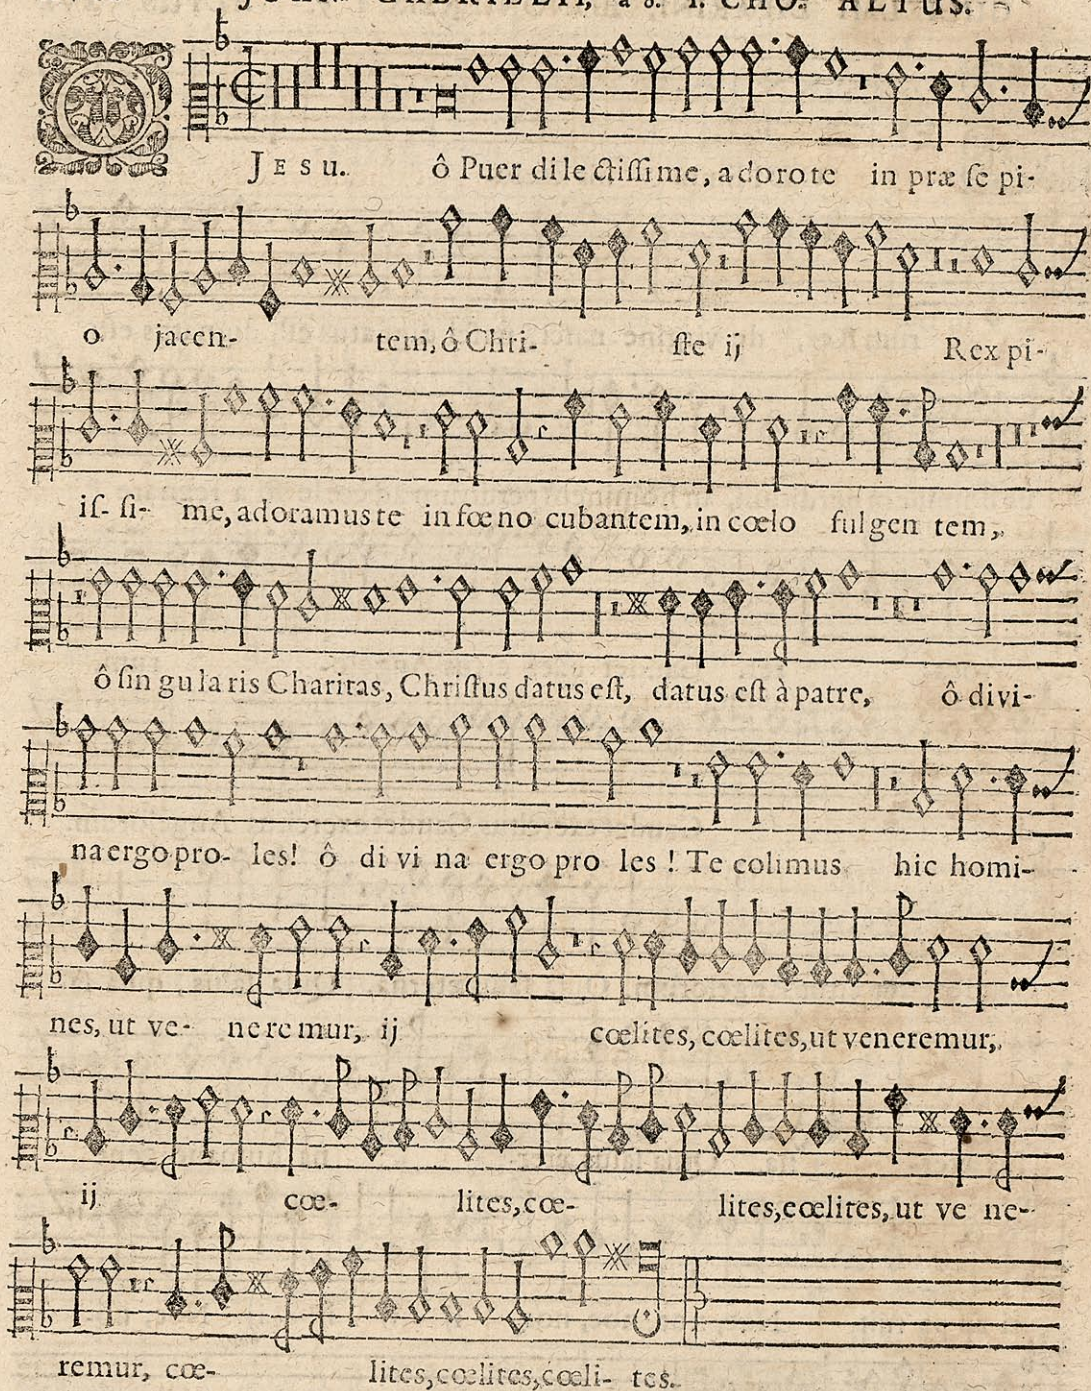 GABRIELII, a 8. I. CHO. ALTUS.
O JESU. ô Puer dilectissime, adoro te in præsepi-
o jacen- tem, ô Chri- ste ij Rex pi-
is- si- me, adoramus te in fœno cubantem, in cœlo fulgen tem,
ô singularis Charitas, Christus datus est, datus est à patre, ô divi-
na ergo pro- les! ô divina ergo pro les! Te colimus hic homi-
nes, ut ve- neremur, ij cœlites, cœlites, ut veneremur,
ij cœ- lites, cœ- lites, eœlites, ut ve ne-
remur, cœ- lites, cœlites, cœli- tes.